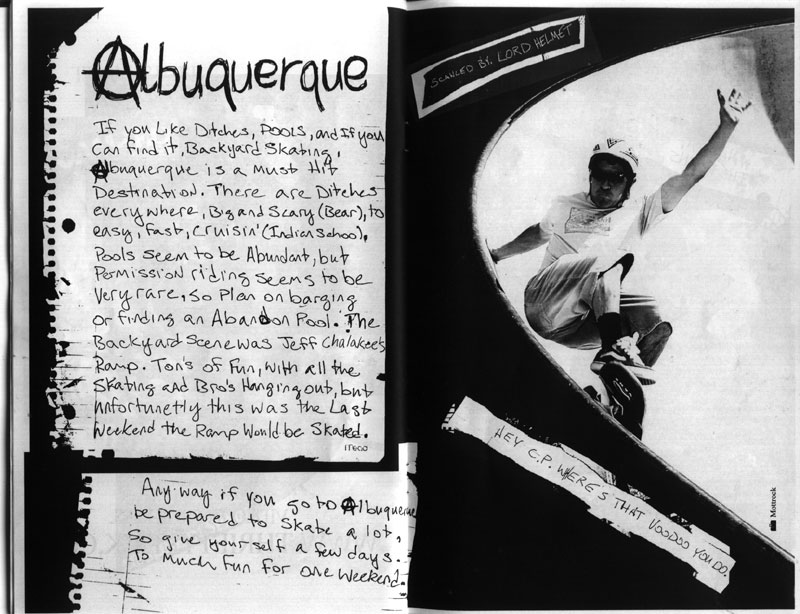 Albuquerque
If you Like Ditches, POOLS, and If you
Can find it, Backyard Skating,
Albuquerque is a Must Hit
Destination. There are Ditches
every where, Big and Scary (Bear), to
easy, fast, cruisin' (Indian School).
Pools seem to be Abundant, but
Permission riding seems to be
Very rare, so Plan on barging
or finding an Abandon Pool. The
Backyard Scene was Jeff Chalakee's
Ramp. Ton's of Fun, with all the
Skating and Bro's Hanging out, but
unfortunetly this was the Last
Weekend the Ramp Would be Skated.
Any way if you go to Albuquerque
be prepared to Skate a lot,
So give your self a few days.
To Much Fun for one Weekend!
SCANCED BY. LORD HELMET
HEY C.P. WHERE'S THAT VOODOO YOU DO.
Mottrock